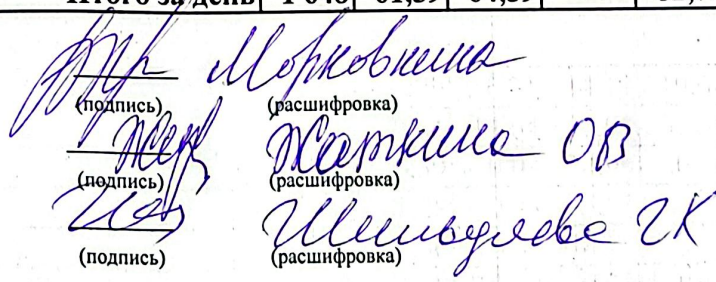 Итого за день
Морковкина
(подпись) (расшифровка)
Жаткина ОВ
(подпись) (расшифровка)
ГК
(подпись) (расшифровка)